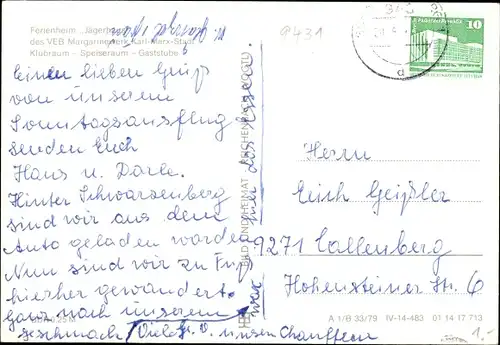 Ferienheim „Jägerh
des VEB Margarinewerk Karl-Marx-Stadt
Klubraum – Speiseraum – Gaststube
Einen lieben Gruß
von unserem
Sonntagsausflug
senden Euch
Hans u. Dorle.
Hinter Schwarzenberg
sind wir aus dem
Auto geladen worden
Nun sind wir zu Fuß
hierher gewandert.
Ganz nach unserem
Geschmack
unsern Chauffeur
war das Essen
BILD UND HEIMAT REICHENBACH (VOGTL)
10
Herrn
Erich Geißler
9271 Callenberg
Hohensteiner Str. 6
A 1/B 33/79 IV-14-483 01 14 17 713
1.-